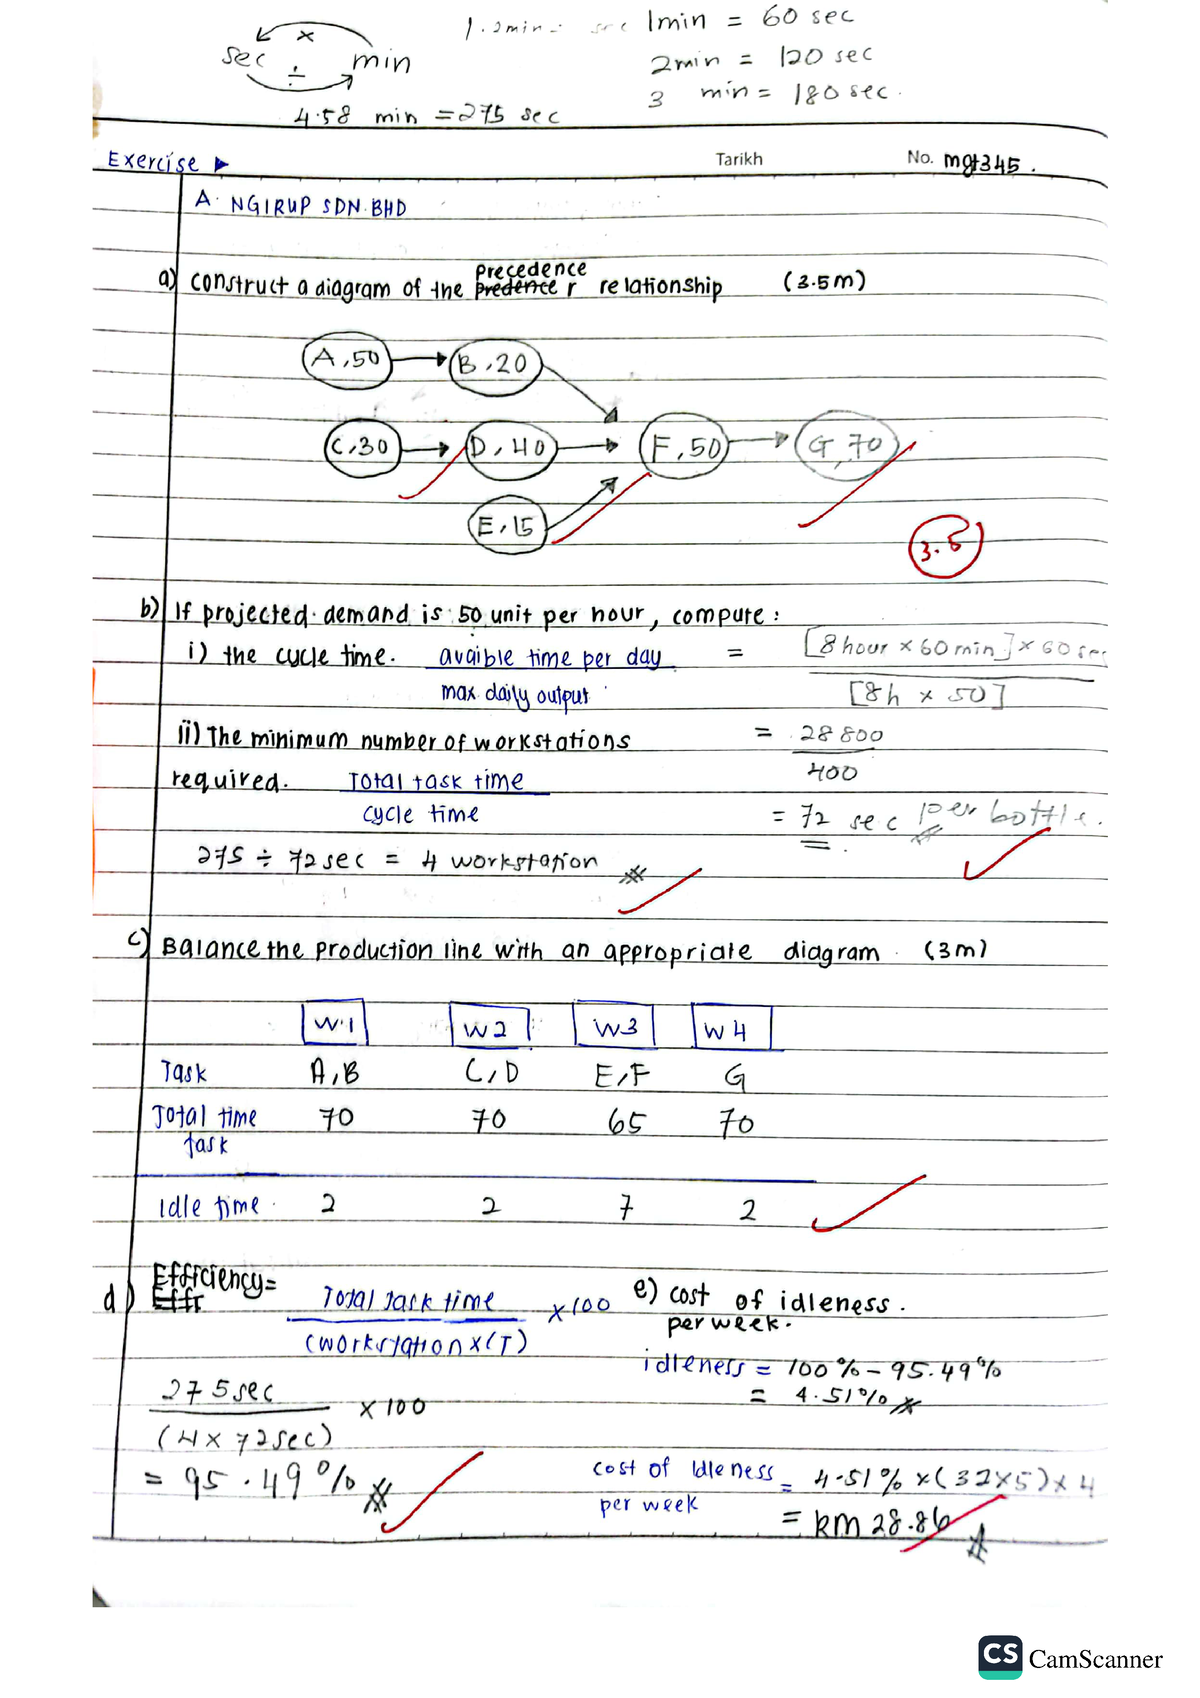 1.2min = sec 1min = 60 sec
sec × ÷ min
2min = 120 sec
3 min = 180 sec.
4.58 min = 275 sec
Exercise ▶ Tarikh No. mgt345.
A. NGIRUP SDN. BHD
a) construct a diagram of the predence r precedence relationship (3.5m)
A,50 B,20
C,30 D,40 F,50 G,70
E,15
3.5
b) If projected demand is 50 unit per hour, compute:
i) the cycle time. avaible time per day = [8 hour × 60 min] × 60 sec
max daily output [8h × 50]
ii) The minimum number of workstations = 28 800
required. Total task time 400
cycle time = 72 sec per bottle.
275 ÷ 72 sec = 4 workstation
c) Balance the production line with an appropriate diagram. (3m)
W.1 W2 W3 W4
Task A,B C,D E,F G
Total time 70 70 65 70
task
Idle time. 2 2 7 2
d) Effr Efficiency= Total task time × 100
(workstation × CT)
e) cost of idleness.
per week.
idleness = 100% - 95.49%
= 4.51%
275 sec × 100
(4 × 72 sec)
= 95.49%
cost of Idleness = 4.51% × (32×5) × 4
per week
= RM 28.86
CS CamScanner